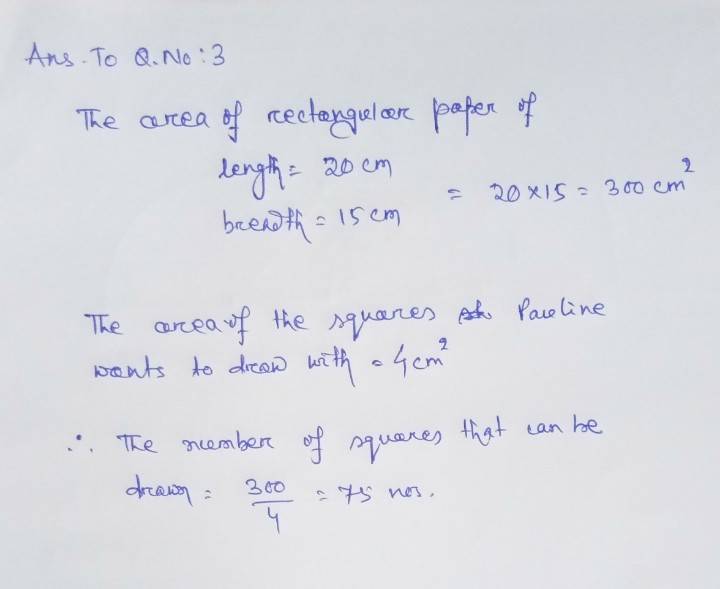 Ans. To Q. No : 3
The area of rectangular paper of
length = 20 cm
breadth = 15 cm = 20 × 15 = 300 cm²
The area of the squares Pauline
wants to draw with = 4 cm²
∴ The number of squares that can be
drawn = 300/4 = 75 nos.